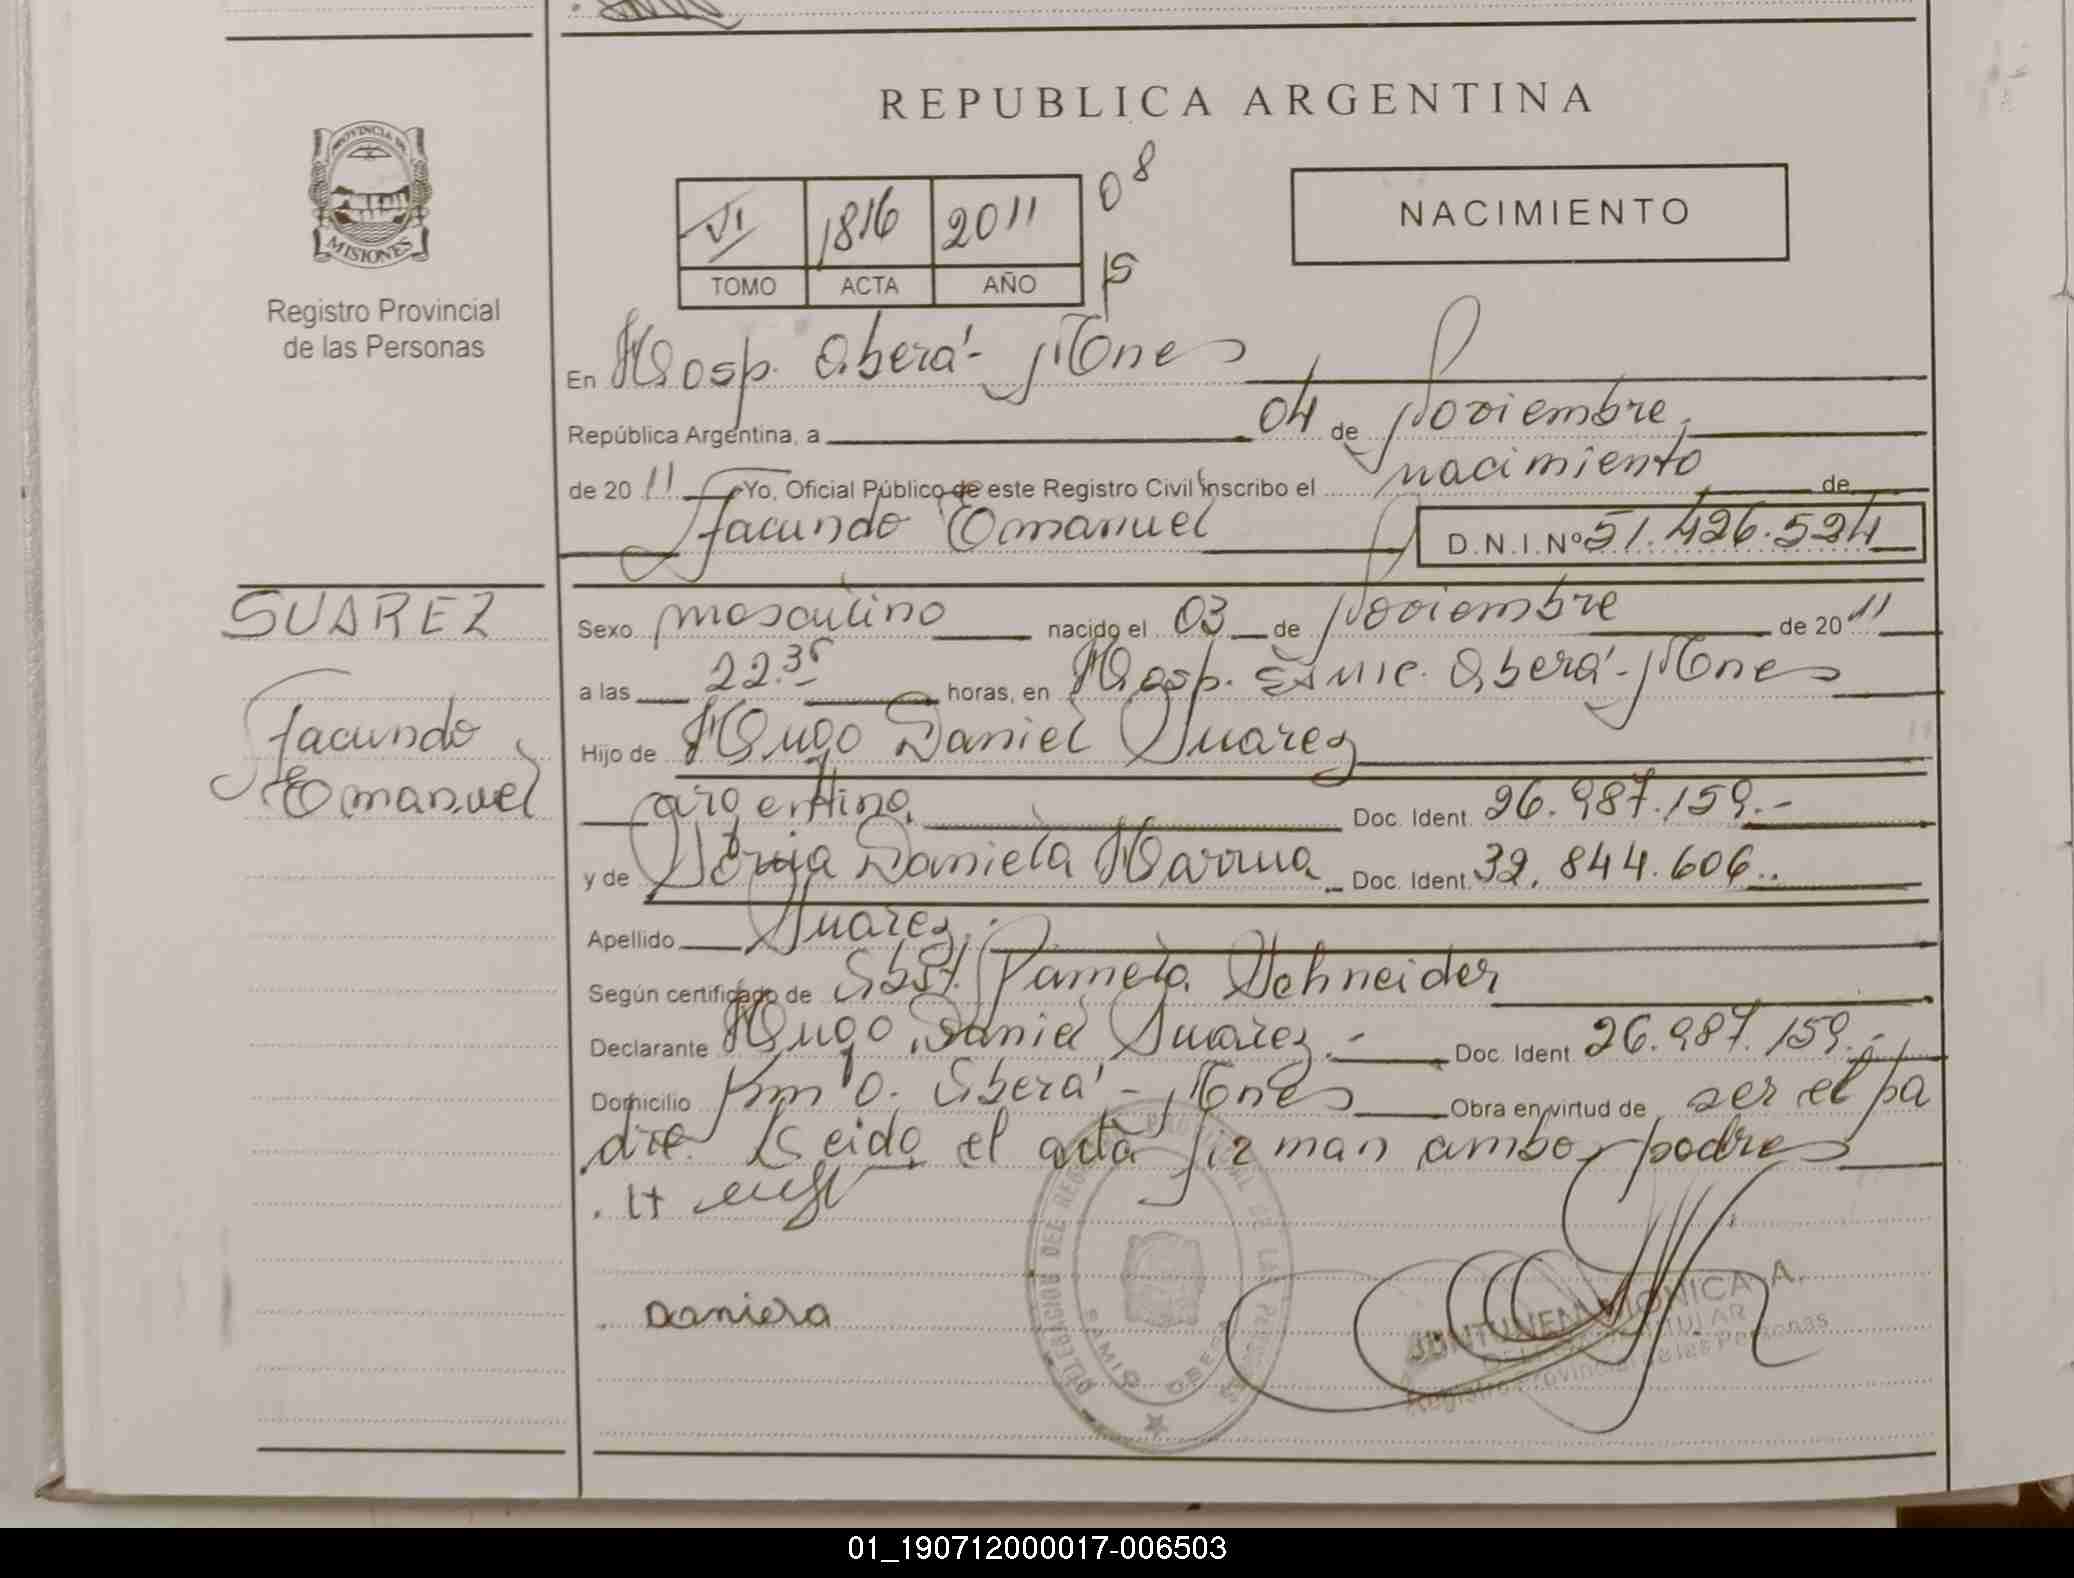 REPUBLICA ARGENTINA
PROVINCIA DE
MISIONES
Registro Provincial
de las Personas
VI 1816 2011 08
TOMO ACTA AÑO 15
NACIMIENTO
En Hosp. Oberá - Mones
República Argentina, a 04 de Noviembre
de 20 11 Yo, Oficial Público de este Registro Civil inscribo el nacimiento de
Facundo Emanuel D.N.I. Nº 51.426.524
SUAREZ
Facundo
Emanuel
Sexo masculino nacido el 03 de Noviembre de 20 11
a las 22.35 horas, en Hosp. Oberá - Mones
Hijo de Hugo Daniel Suarez
argentino Doc. Ident. 26.987.159.-
y de Daniela Doc. Ident. 32.844.606..
Apellido Suarez.
Según certificado de Obst. Pamela Schneider
Declarante Hugo Daniel Suarez.- Doc. Ident. 26.987.159.-
Domicilio Km 0. Oberá - Mones Obra en virtud de ser el pa
dre. Leida el acta firman ambos padres
Daniela
DIRECCION DEL REGISTRO PROVINCIAL DE LAS PERSONAS
OBERA
MONICA A.
TITULAR
Registro Provincial de las Personas
01_190712000017-006503